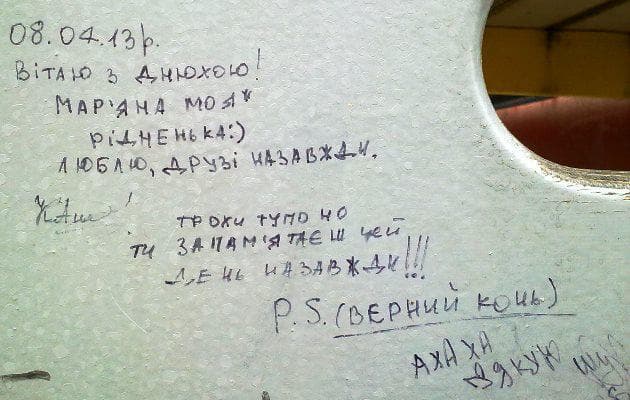 08.04.13р.
ВІТАЮ З ДНЮХОЮ!
МАР'ЯНА МОЯ*
РІДНЕНЬКА:)
ЛЮБЛЮ, ДРУЗІ НАЗАВЖДИ.
ТРОХИ ТУПО НО
ТИ ЗАПАМ'ЯТАЄШ ЦЕЙ
ДЕНЬ НАЗАВЖДИ!!!
P.S. (ВЕРНИЙ КОНЬ)
АХАХА
ДЯКУЮ